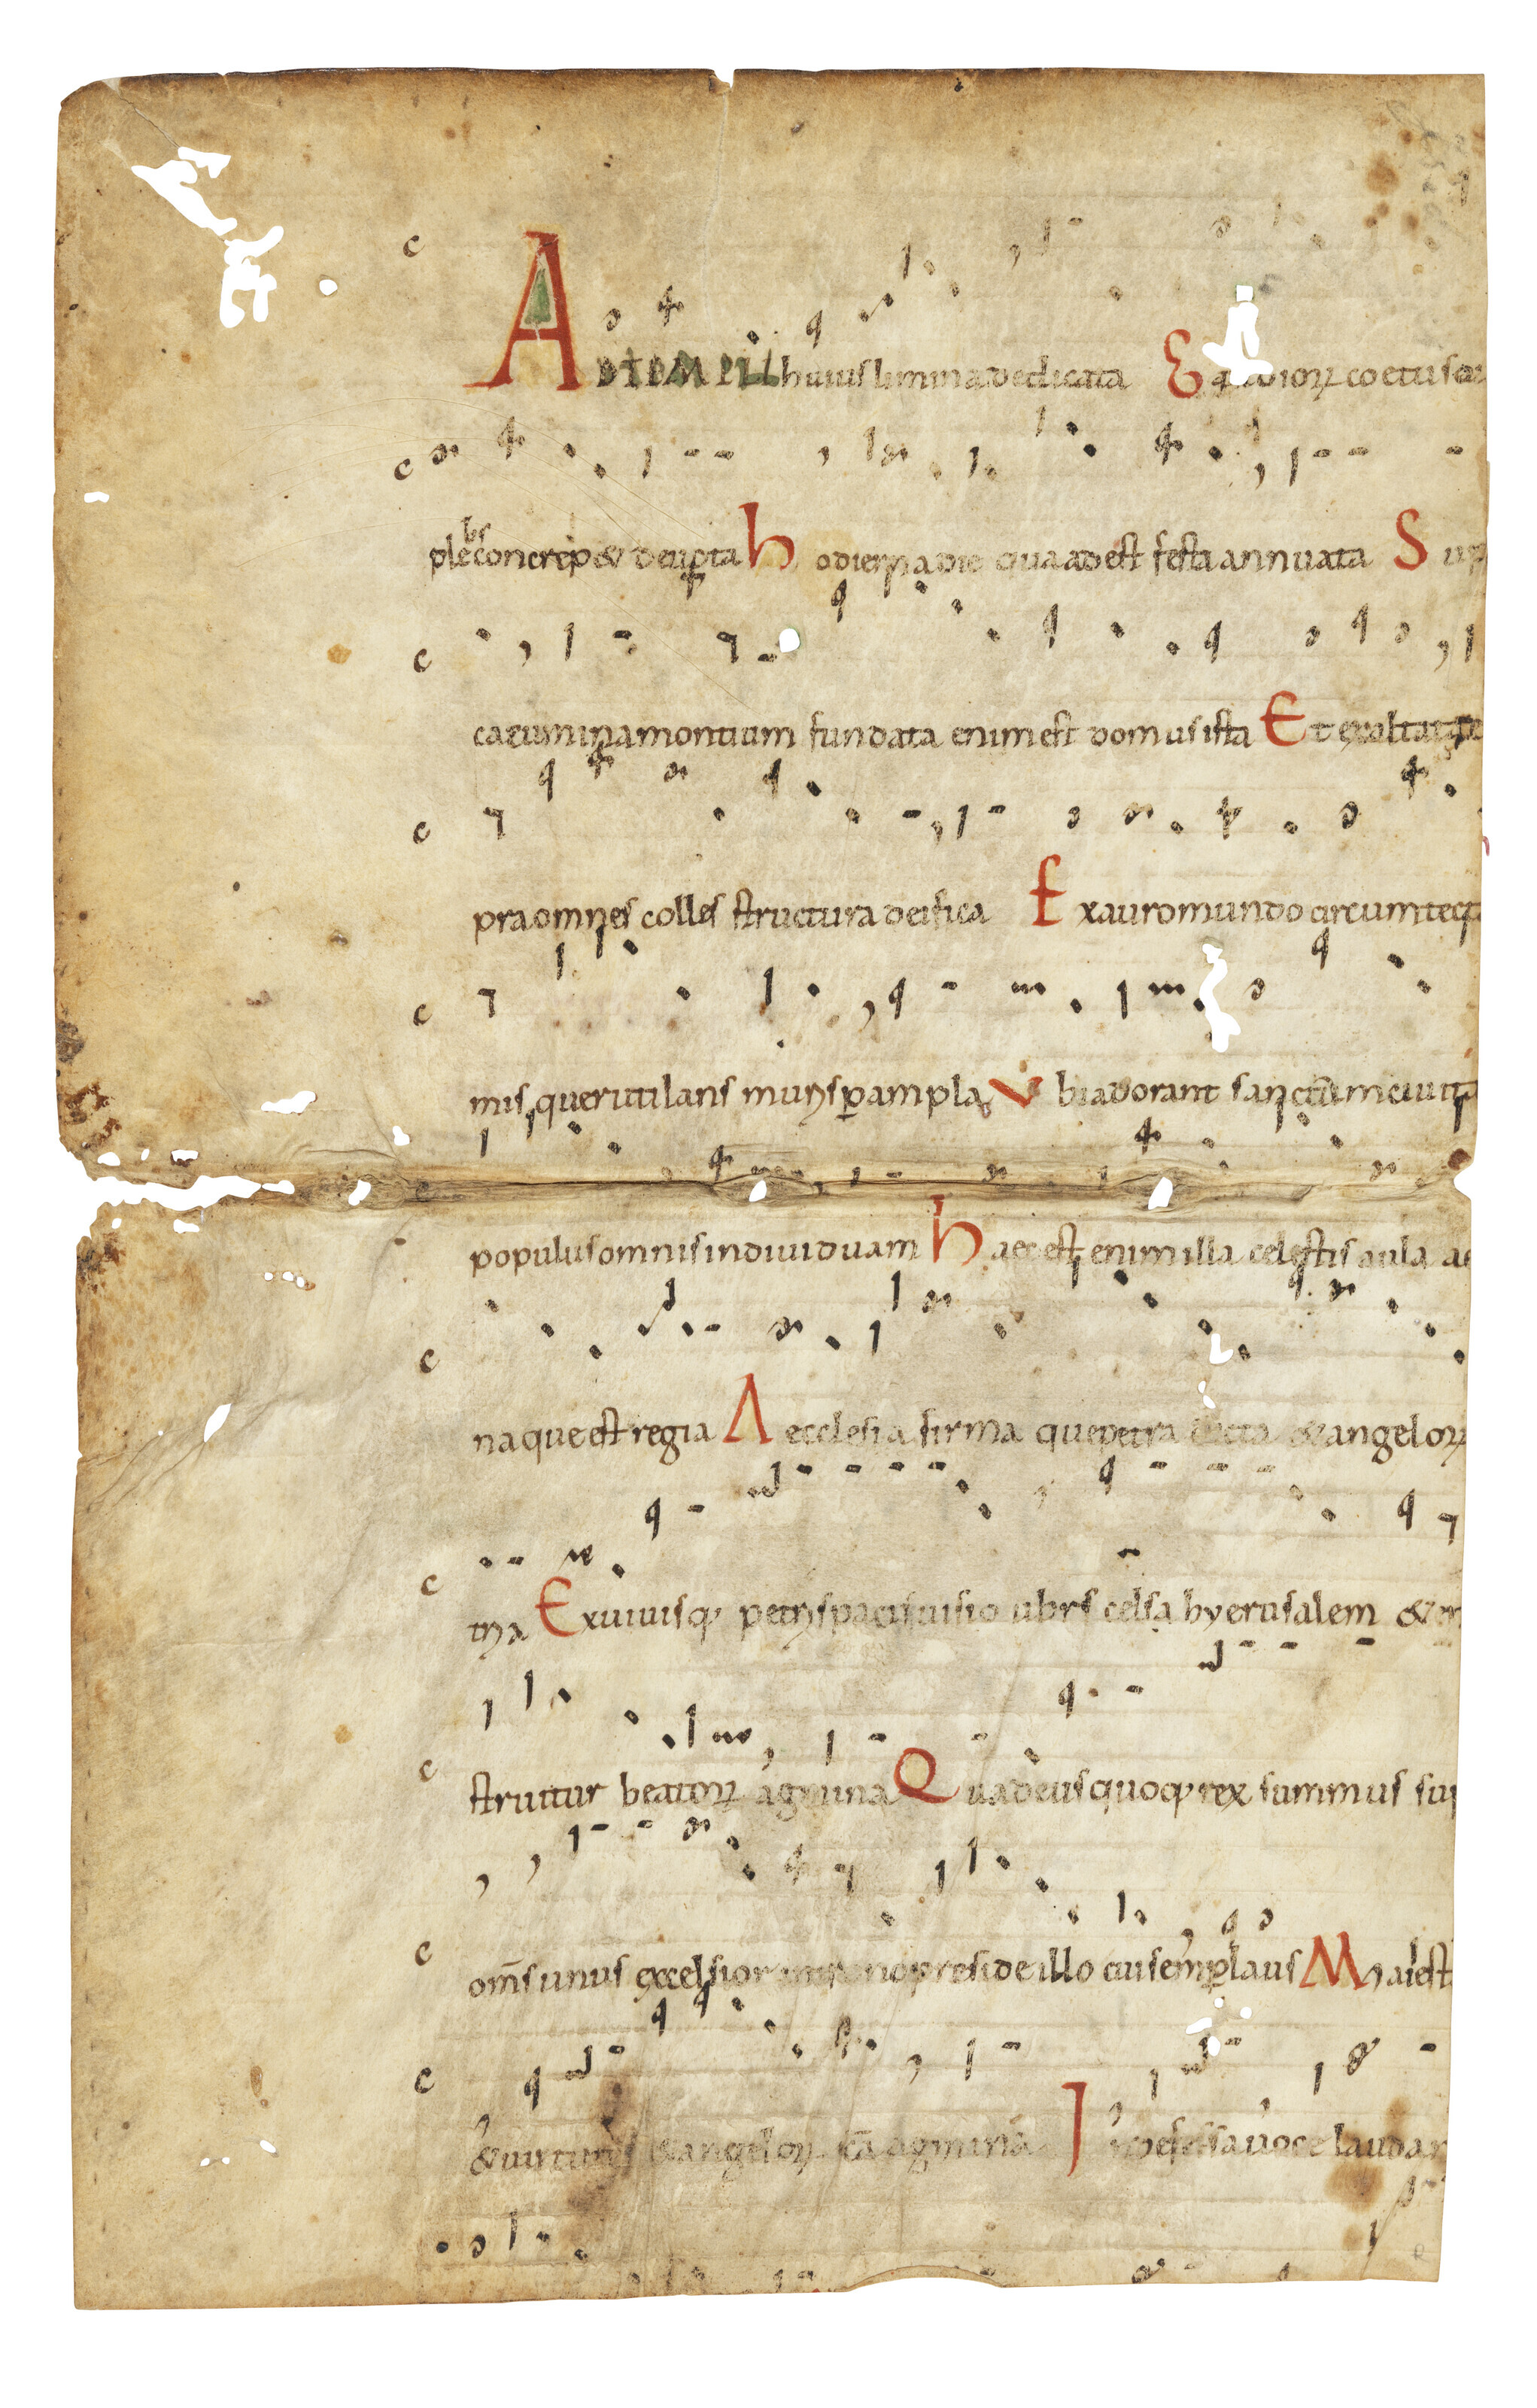 AD TEMPLI huius limina dedicata E coetus
plebs concrep& deuota hodierna die qua adest festa annuata S up
cacumina montium fundata enim est domus ista Et exaltata
pra omnes colles structura deifica Ex auro mundo circumtect
misque rutilans muris p ampla Vbi adorant sanctum
populus omnis individuam haec est enim illa celestis aula
naque est regia A ecclesia firma que petra & angeloꝝ
tria Ex uiuisq; petris pacis uisio celsa hyerusalem &
struitur beatoꝝ agmina Qua deus quoq; rex summus
om̄s unus excelsior preside illo cui semp laus Maiest
& uirtutes & angeloꝝ agmina Indefessa uoce laudan